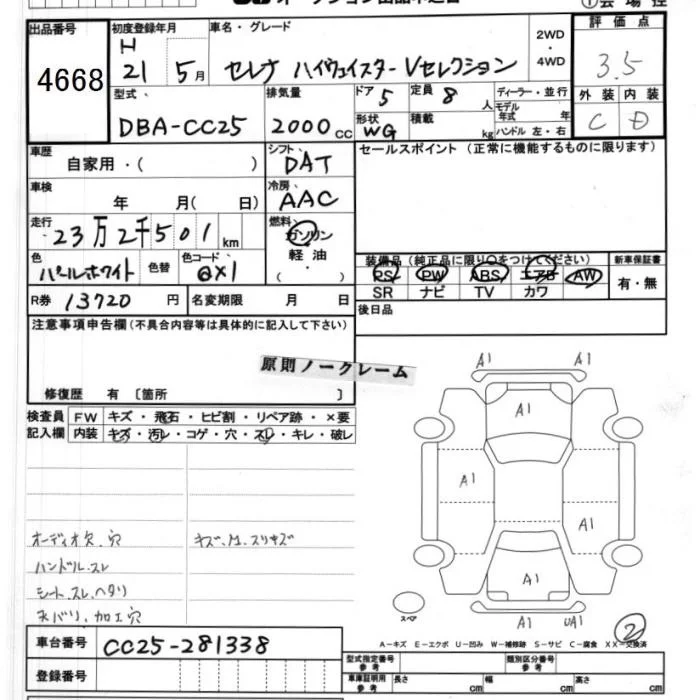 出品番号
4668
初度登録年月
H
21 5月
車名・グレード
セレナ ハイウェイスター Vセレクション
2WD
・
4WD
評価点
3.5
外装 内装
C D
型式
DBA-CC25
排気量
2000 cc
ドア 5
形状 WG
定員 8 人
積載 kg
ディーラー・並行
モデル
年式 年
ハンドル 左・右
車歴
自家用・( )
シフト
DAT
セールスポイント (正常に機能するものに限ります)
車検
年 月( 日)
冷房
AAC
走行
23万2千501km
燃料
ガソリン
軽油
( )
色
パールホワイト
色替
色コード
QX1
装備品 (純正品に限り○をつけてください)
PS PW ABS エアB AW
SR ナビ TV カワ
新車保証書
有・無
R券 13720 円
名変期限 月 日
後日品
注意事項申告欄 (不具合内容等は具体的に記入して下さい)
原則ノークレーム
修復歴 有〔箇所 〕
検査員
記入欄
FW キズ・飛石・ヒビ割・リペア跡・×要
内装 キズ・汚レ・コゲ・穴・スレ・キレ・破レ
オーディオ欠.穴
ハンドル.スレ
シート.スレ.ヘタリ
ネバリ.加工穴
A1 A1
A1
A1
A1
A1
A1 UA1
スペア
2
A-キズ E-エクボ U-凹み W-補修跡 S-サビ C-腐食 XX-交換済
車台番号 CC25-281338
登録番号
型式指定番号
参考
類別区分番号
参考
車庫証明用
参考
長さ cm 幅 cm 高さ cm